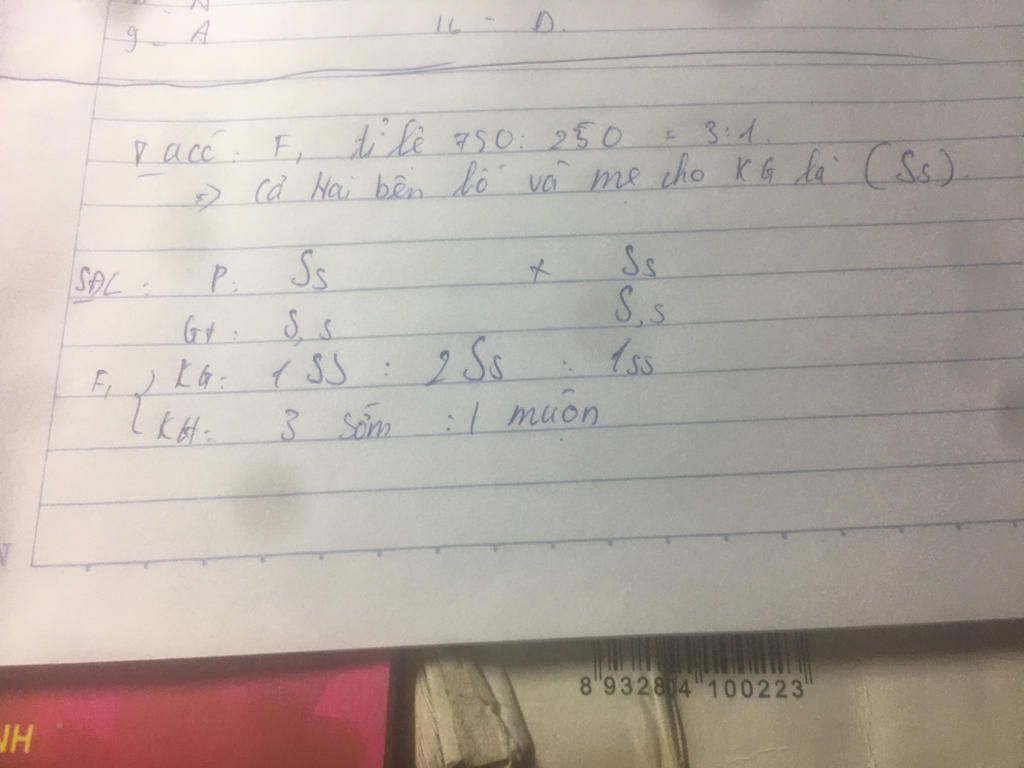 9 - A 16 - D.
∇ acc: F₁ tỉ lệ 750: 250 = 3:1.
=> Cả Hai bên bố và mẹ cho KG là (Ss).
SĐL: P: Ss x Ss
Gt: S, s S, s
F₁ KG: 1SS : 2Ss : 1ss
KH: 3 sớm : 1 muộn
NH
8 932804 100223